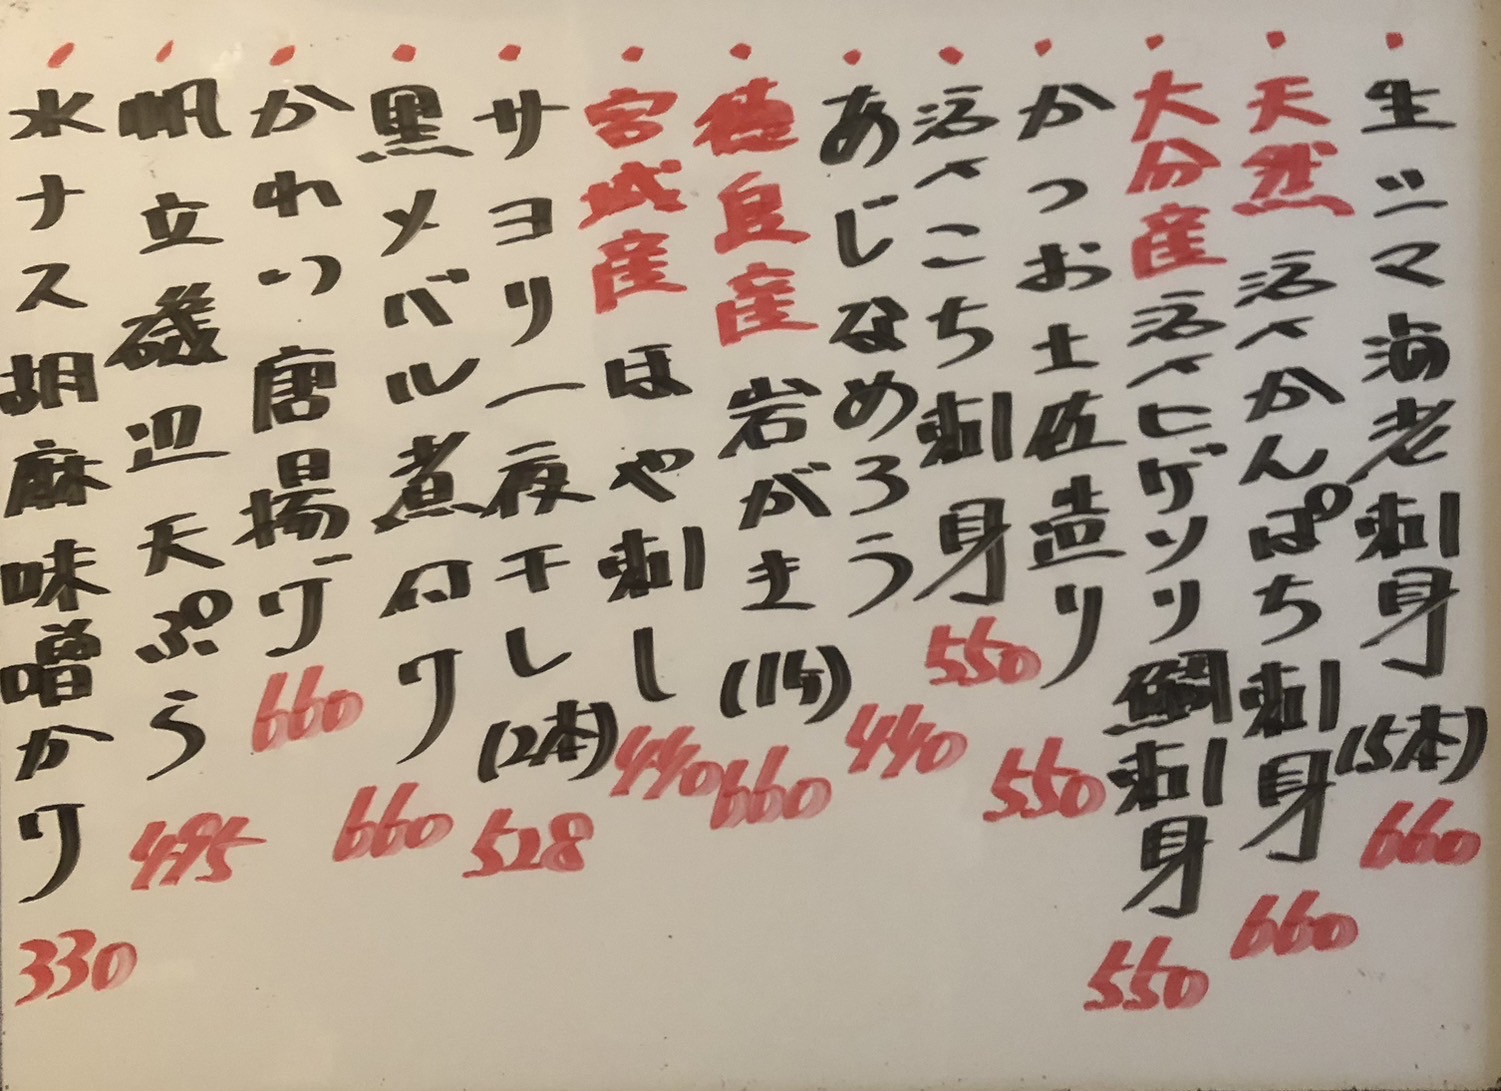 ・生シマ海老刺身(5本) 660
・天然 活〆かんぱち刺身 660
・大分産 活〆ヒゲソリ鯛刺身 550
・かつお土佐造り 550
・活〆こち刺身 550
・あじなめろう 440
・徳島産 岩がき(1個) 660
・宮城産 ほや刺し 440
・サヨリ一夜干し(2本) 528
・黒メバル煮付け 660
・かれい唐揚げ 660
・帆立磯辺天ぷら 495
・水ナス胡麻味噌かけ 330